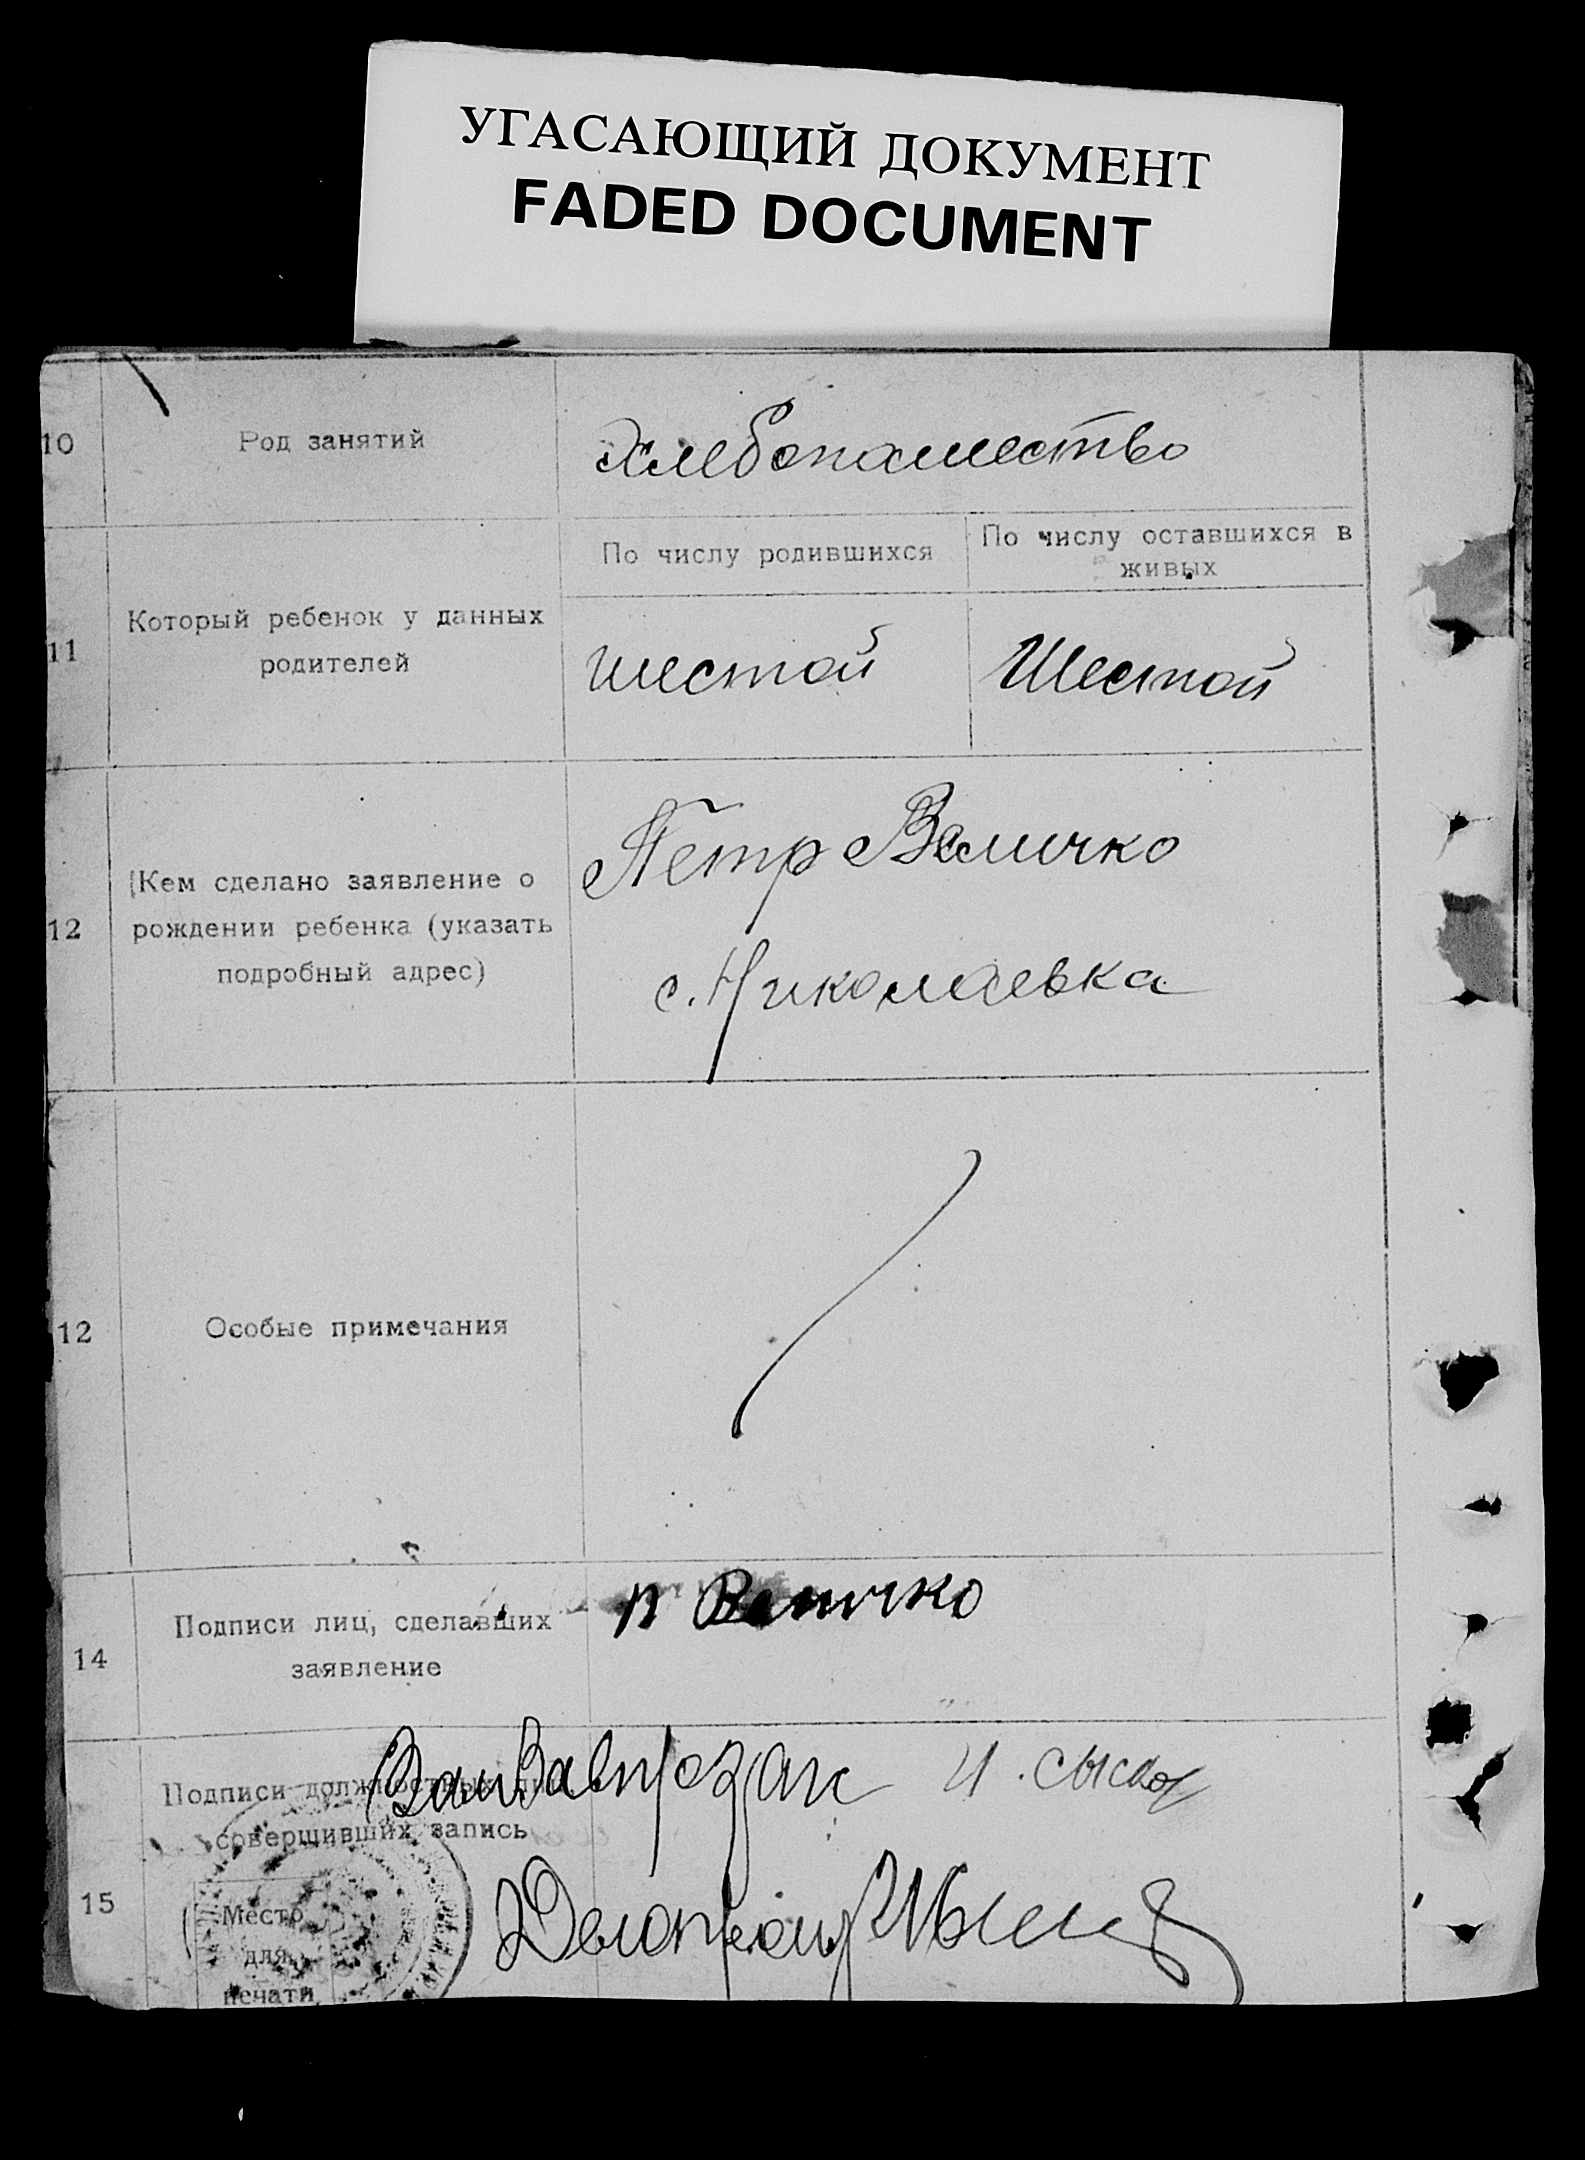 УГАСАЮЩИЙ ДОКУМЕНТ
FADED DOCUMENT
10
Род занятий
Хлебопашество
11
Который ребенок у данных
родителей
По числу родившихся
По числу оставшихся в
живых
шестой
Шестой
12
Кем сделано заявление о
рождении ребенка (указать
подробный адрес)
Петр Величко
с. Николаевка
12
Особые примечания
14
Подписи лиц, сделавших
заявление
п Величко
15
Подписи должностных лиц
совершивших запись
Зав.
Место
для
печати
Делопроизв